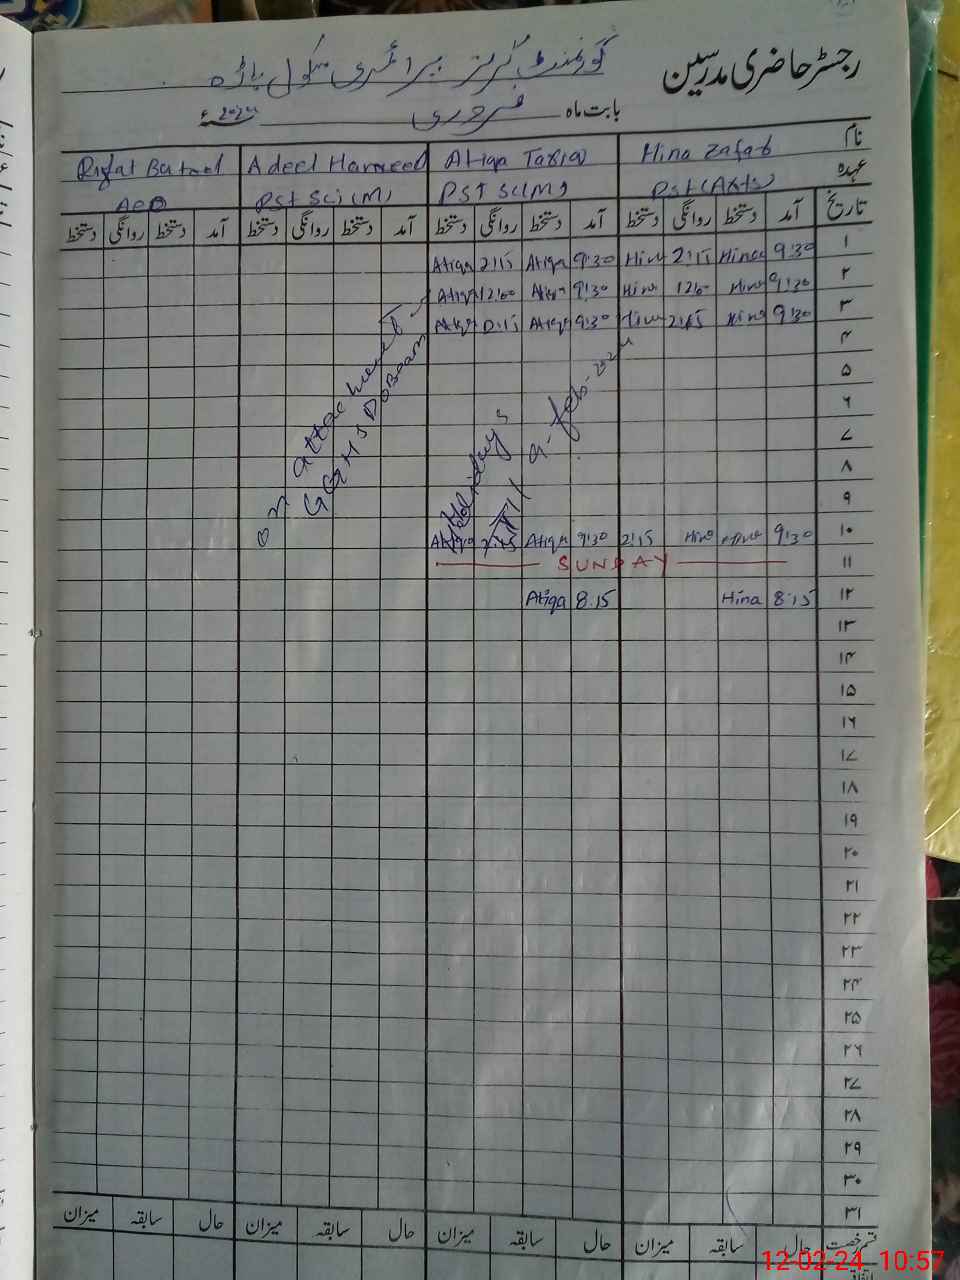 رجسٹر حاضری مدرسین
گورنمنٹ گرلز پرائمری سکول باڑہ
بابت ماہ فروری ۲۰۲۴ء
نام Hina Zafar Atiqa Tariq Adeel Hameed Rifat Batool
عہدہ Pst (Arts) PST Sc(M) Pst Sci (M) AEO
تاریخ آمد دستخط روانگی دستخط آمد دستخط روانگی دستخط آمد دستخط روانگی دستخط آمد دستخط روانگی دستخط
۱ 9:30 Hina 2:15 Hina 9:30 Atiqa 2:15 Atiqa
۲ 9:30 Hina Hina 9:30 Atiqa 12:00 Atiqa
۳ 9:30 Hina Hina 9:30 Atiqa Atiqa
۴
۵
۶
۷
۸
۹
on attachment
GGHS
Holidays
9-feb-2024
۱۰ 9:30 Hina Hina 2:15 9:30 Atiqa Atiqa
۱۱ SUNDAY
۱۲ 8:15 Hina 8:15 Atiqa
۱۳
۱۴
۱۵
۱۶
۱۷
۱۸
۱۹
۲۰
۲۱
۲۲
۲۳
۲۴
۲۵
۲۶
۲۷
۲۸
۲۹
۳۰
۳۱
قسم رخصت حال سابقہ میزان حال سابقہ میزان حال سابقہ میزان حال سابقہ میزان
12-02-24 10:57